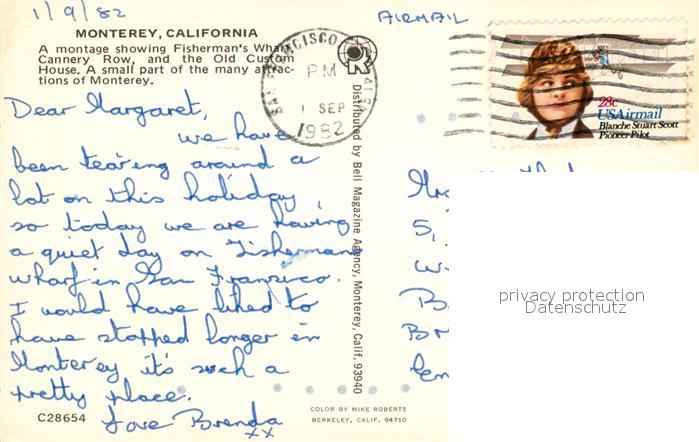 1/9/82
AIRMAIL
MONTEREY, CALIFORNIA
A montage showing Fisherman's Wharf,
Cannery Row, and the Old Custom
House. A small part of the many attrac-
tions of Monterey.
SAN FRANCISCO
PM
1 SEP
1982
28c
USAirmail
Blanche Stuart Scott
Pioneer Pilot
Dear Margaret,
we have
been tearing around a
lot on this holiday,
so today we are having
a quiet day on Fishermans
wharf in San Franzisco.
I would have liked to
have stopped longer in
Monterey it's such a
pretty place.
Love Brenda
xx
Distributed by Bell Magazine Agency, Monterey, Calif. 93940
5,
privacy protection
Datenschutz
C28654
COLOR BY MIKE ROBERTS
BERKELEY, CALIF. 94710